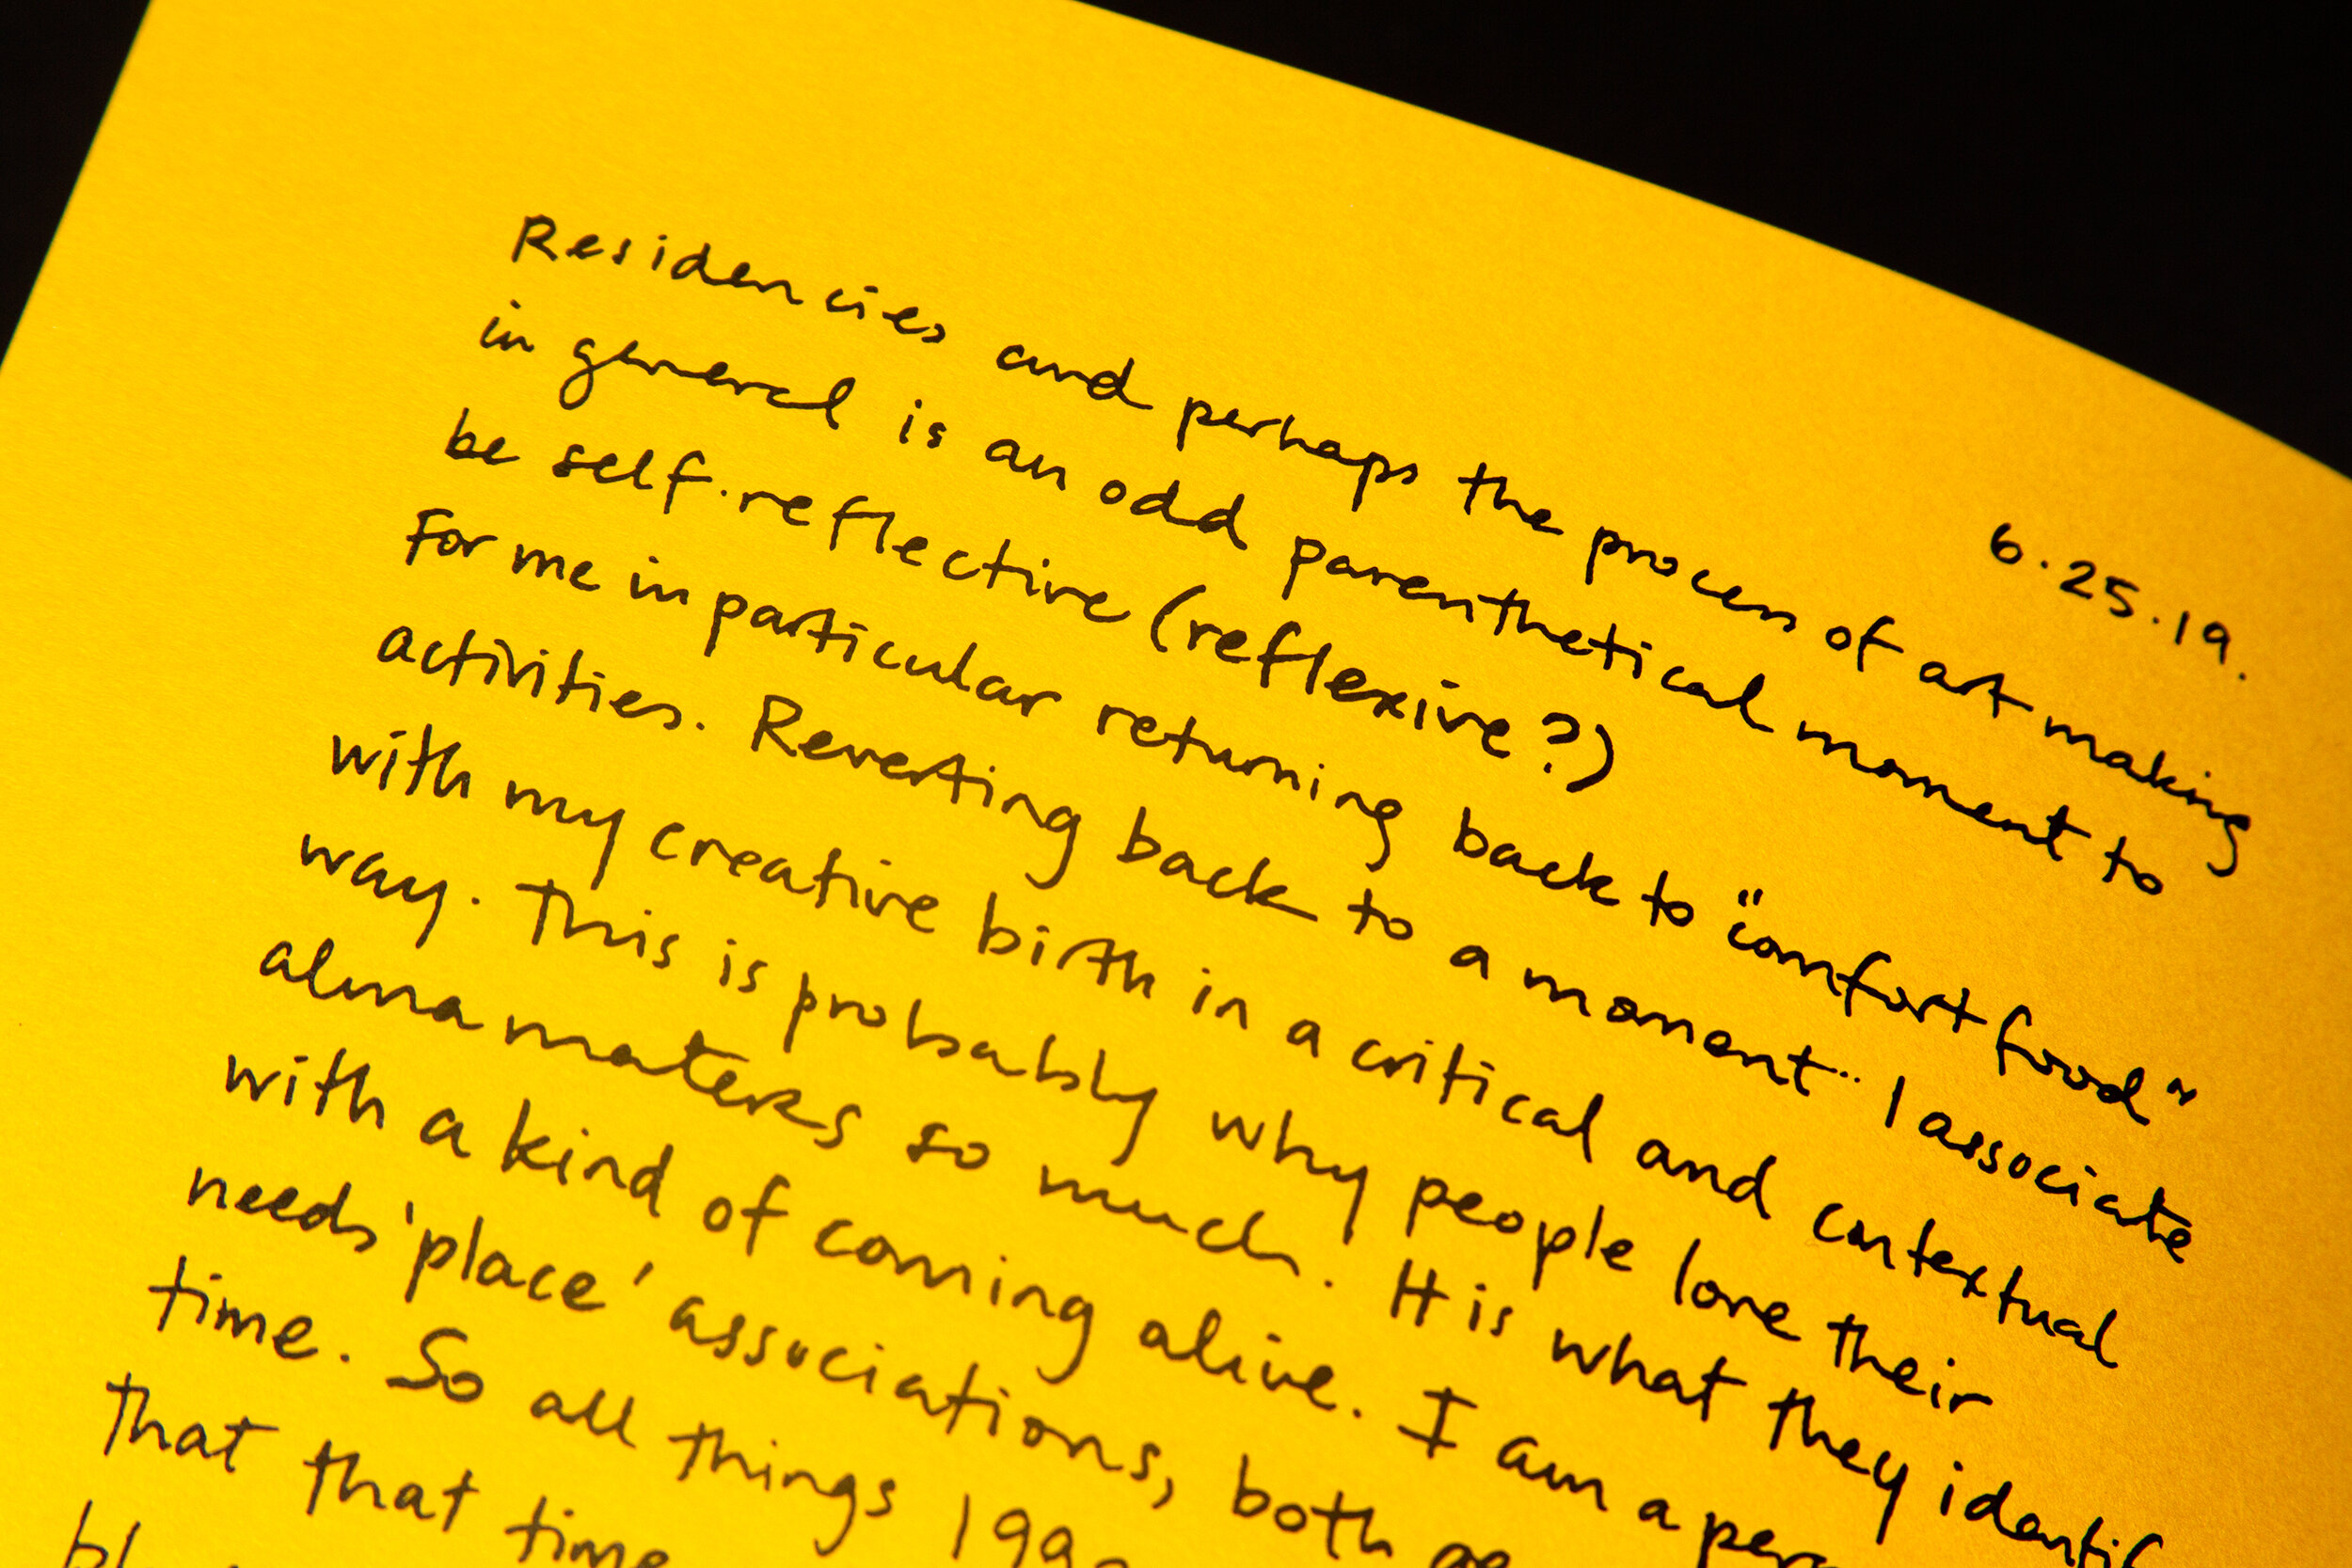 6.25.19.
Residencies and perhaps the process of art making
in general is an odd parenthetical moment to
be self-reflective (reflexive?)
For me in particular returning back to "comfort food"
activities. Reverting back to a moment.. I associate
with my creative birth in a critical and contextual
way. This is probably why people love their
alma maters so much. It is what they
with a kind of coming alive. I am a
needs 'place' associations, both
time. So all things
that that time